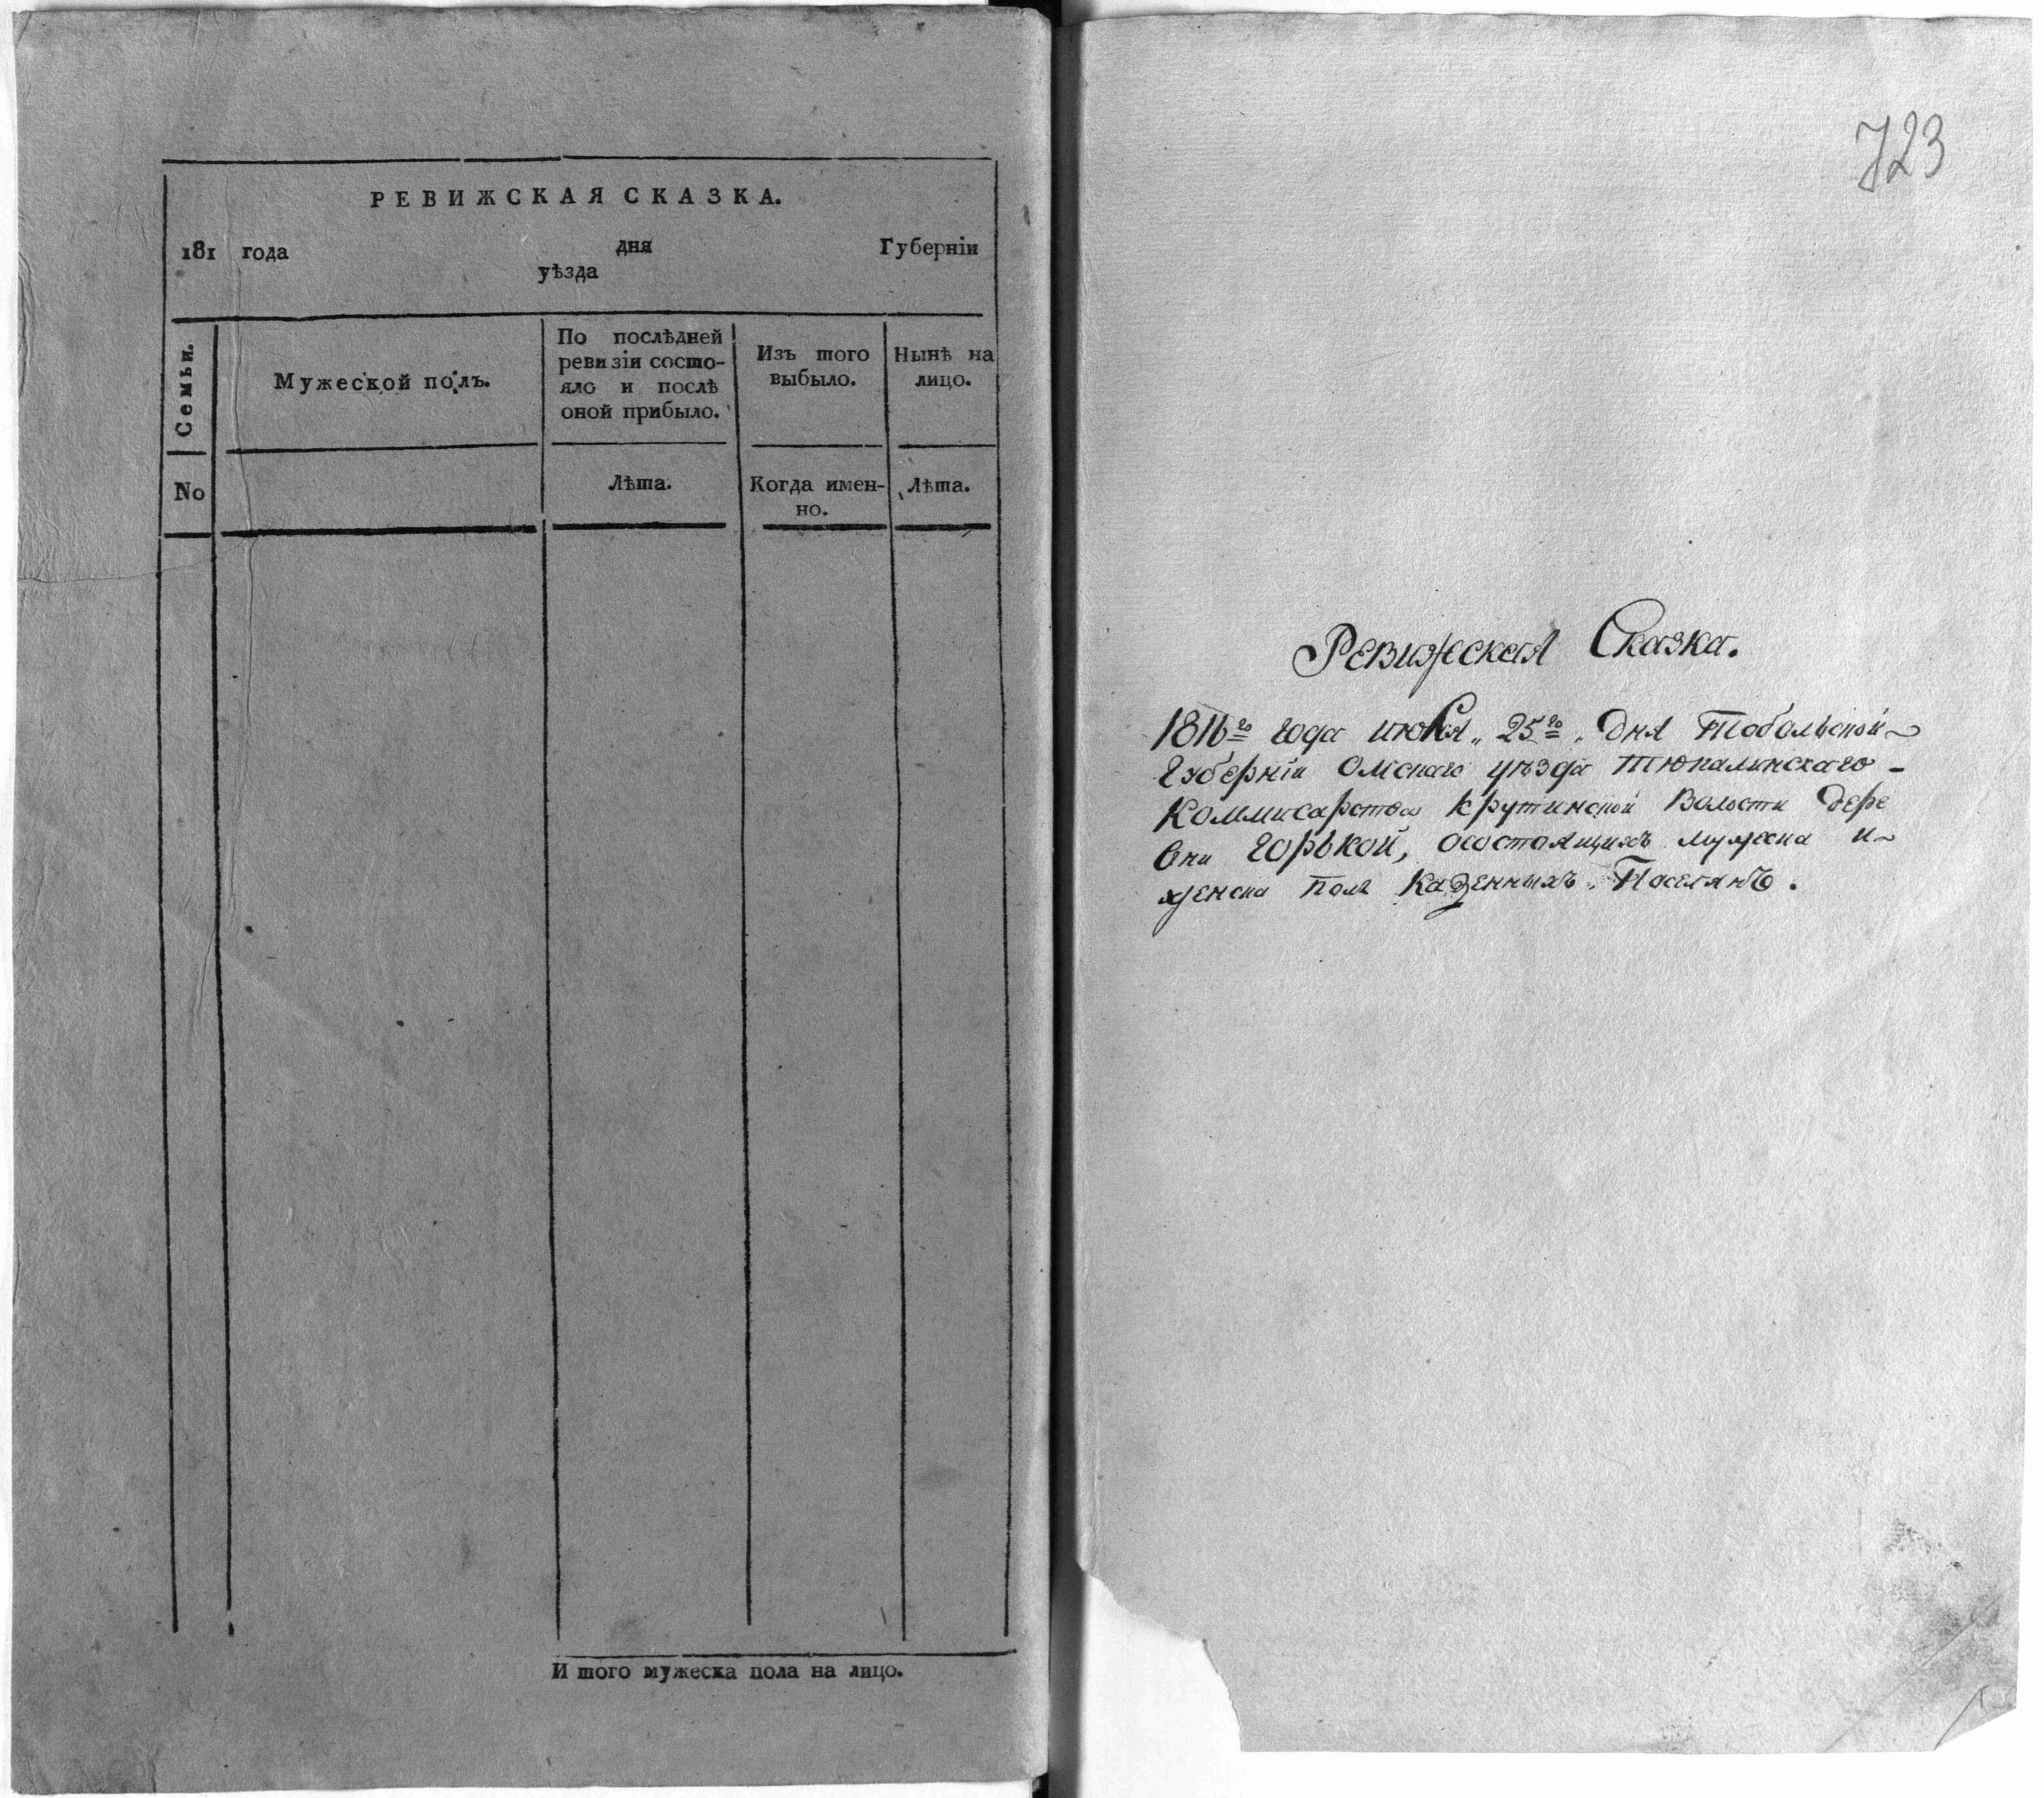 РЕВИЖСКАЯ СКАЗКА.
181 года дня Губерніи
уѣзда
Семьи.
Мужеской полъ.
По послѣдней
ревизіи состо-
яло и послѣ
оной прибыло.
Изъ того
выбыло.
Нынѣ на
лицо.
No
Лѣта.
Когда имен-
но.
Лѣта.
И того мужеска пола на лицо.
723
Ревижеская Сказка.
1816го года июля 25го дня Тобольской
Губерніи Омскаго уѣзда Тюкалинскаго -
Коммисарства Крутинской Волости дере
вни Горькой, осостоящихъ мужеска и
женска пола казенныхъ Поселянъ.